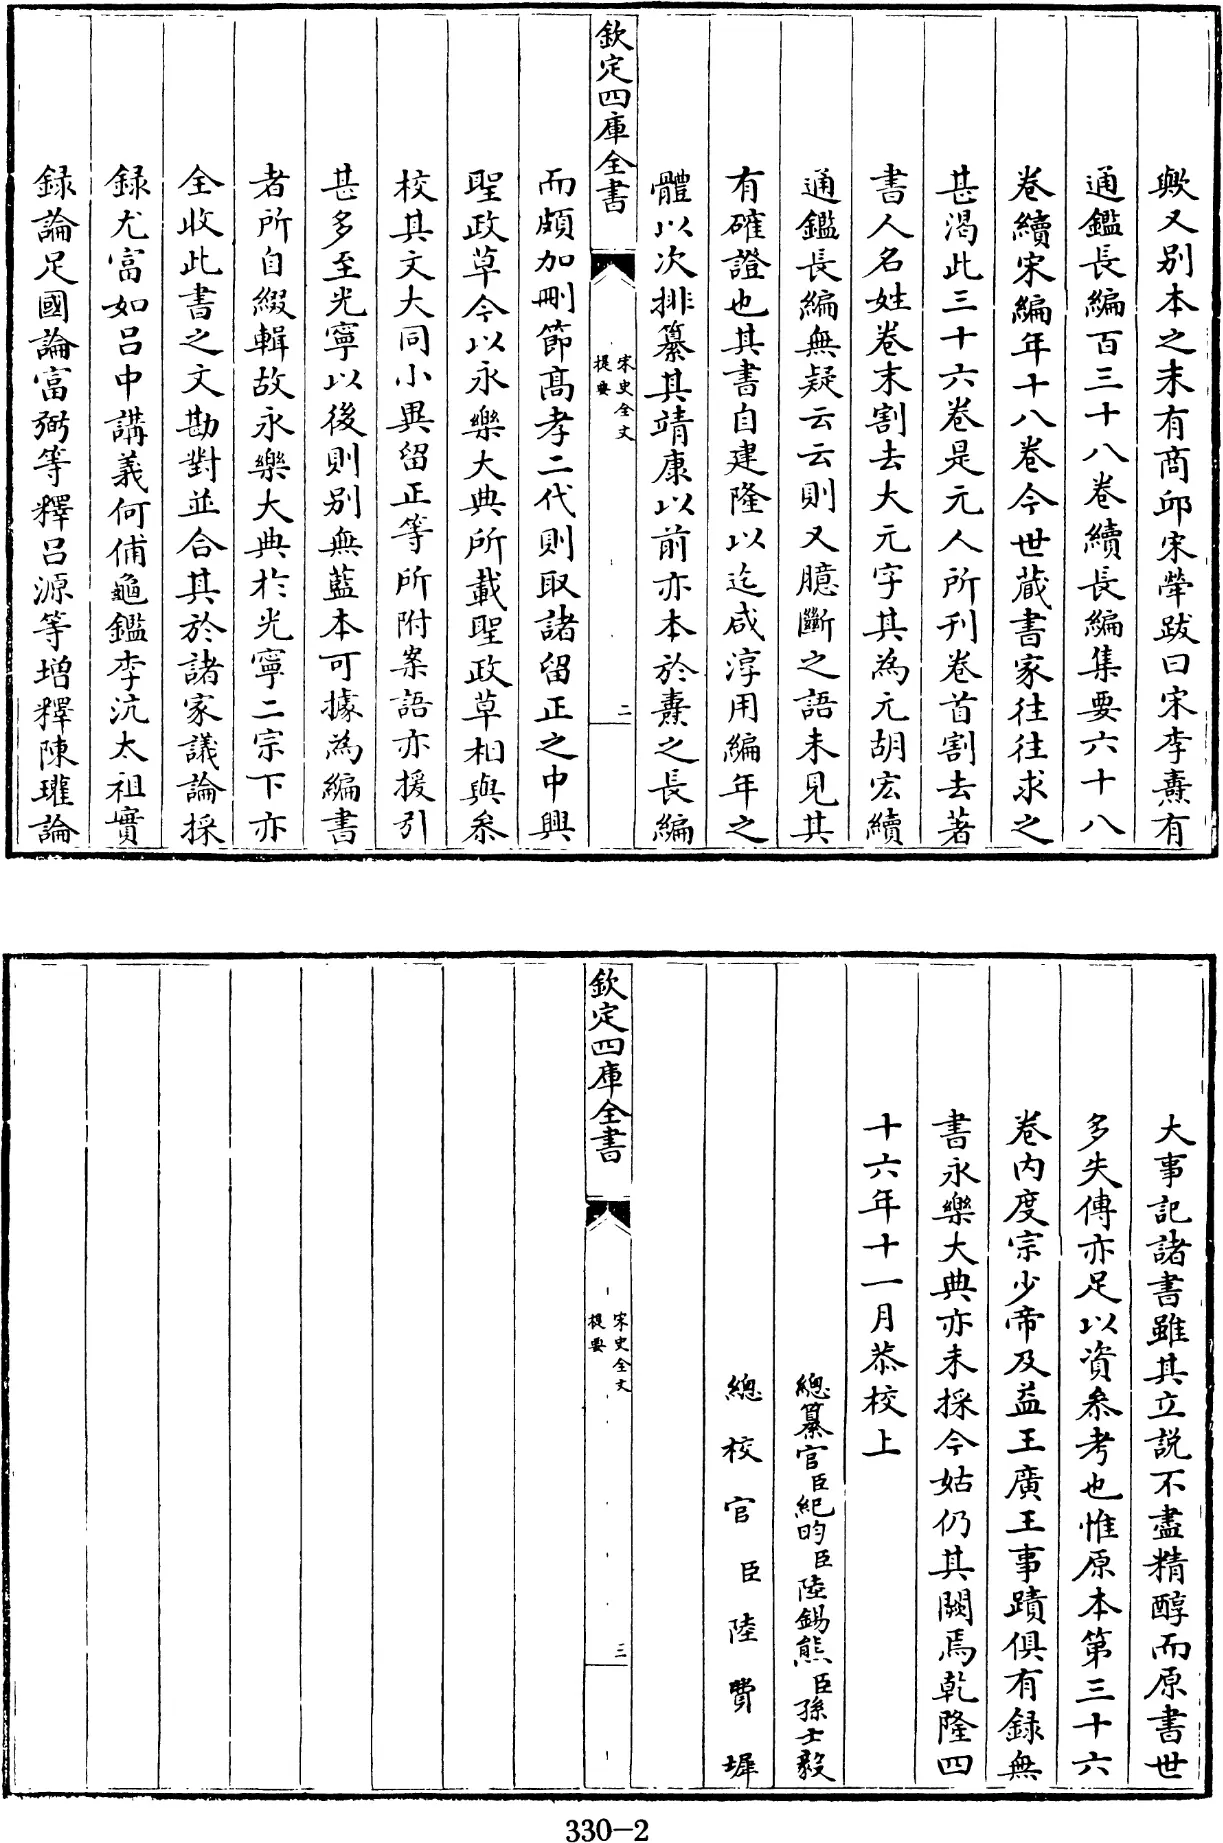 歟又别本之末有商邱宋犖跋曰宋李燾有
通鑑長編百三十八卷續長編集要六十八
卷續宋編年十八卷今世蔵書家往往求之
甚渴此三十六卷是元人所刋卷首割去著
書人名姓卷末割去大元字其為元胡宏續
通鑑長編無疑云云則又臆斷之語未見其
有確證也其書自建隆以迄咸淳用編年之
體以次排纂其靖康以前亦本於燾之長編
欽定四庫全書
宋史全文
提要
二
而頗加刪節髙孝二代則取諸留正之中興
聖政草今以永樂大典所載聖政草相與叅
校其文大同小異留正等所附案語亦援引
甚多至光寧以後則别無藍本可據為編書
者所自綴輯故永樂大典於光寧二宗下亦
全收此書之文勘對並合其於諸家議論採
録尤富如吕中講義何俌龜鑑李沆太祖實
録論足國論富弼等釋吕源等增釋陳瓘論
大事記諸書雖其立説不盡精醇而原書世
多失傳亦足以資叅考也惟原本第三十六
卷内度宗少帝及益王廣王事蹟俱有録無
書永樂大典亦未採今姑仍其闕焉乾隆四
十六年十一月恭校上
總纂官臣紀昀臣陸錫熊臣孫士毅
總校官臣陸費墀
欽定四庫全書
宋史全文
提要
三
330-2